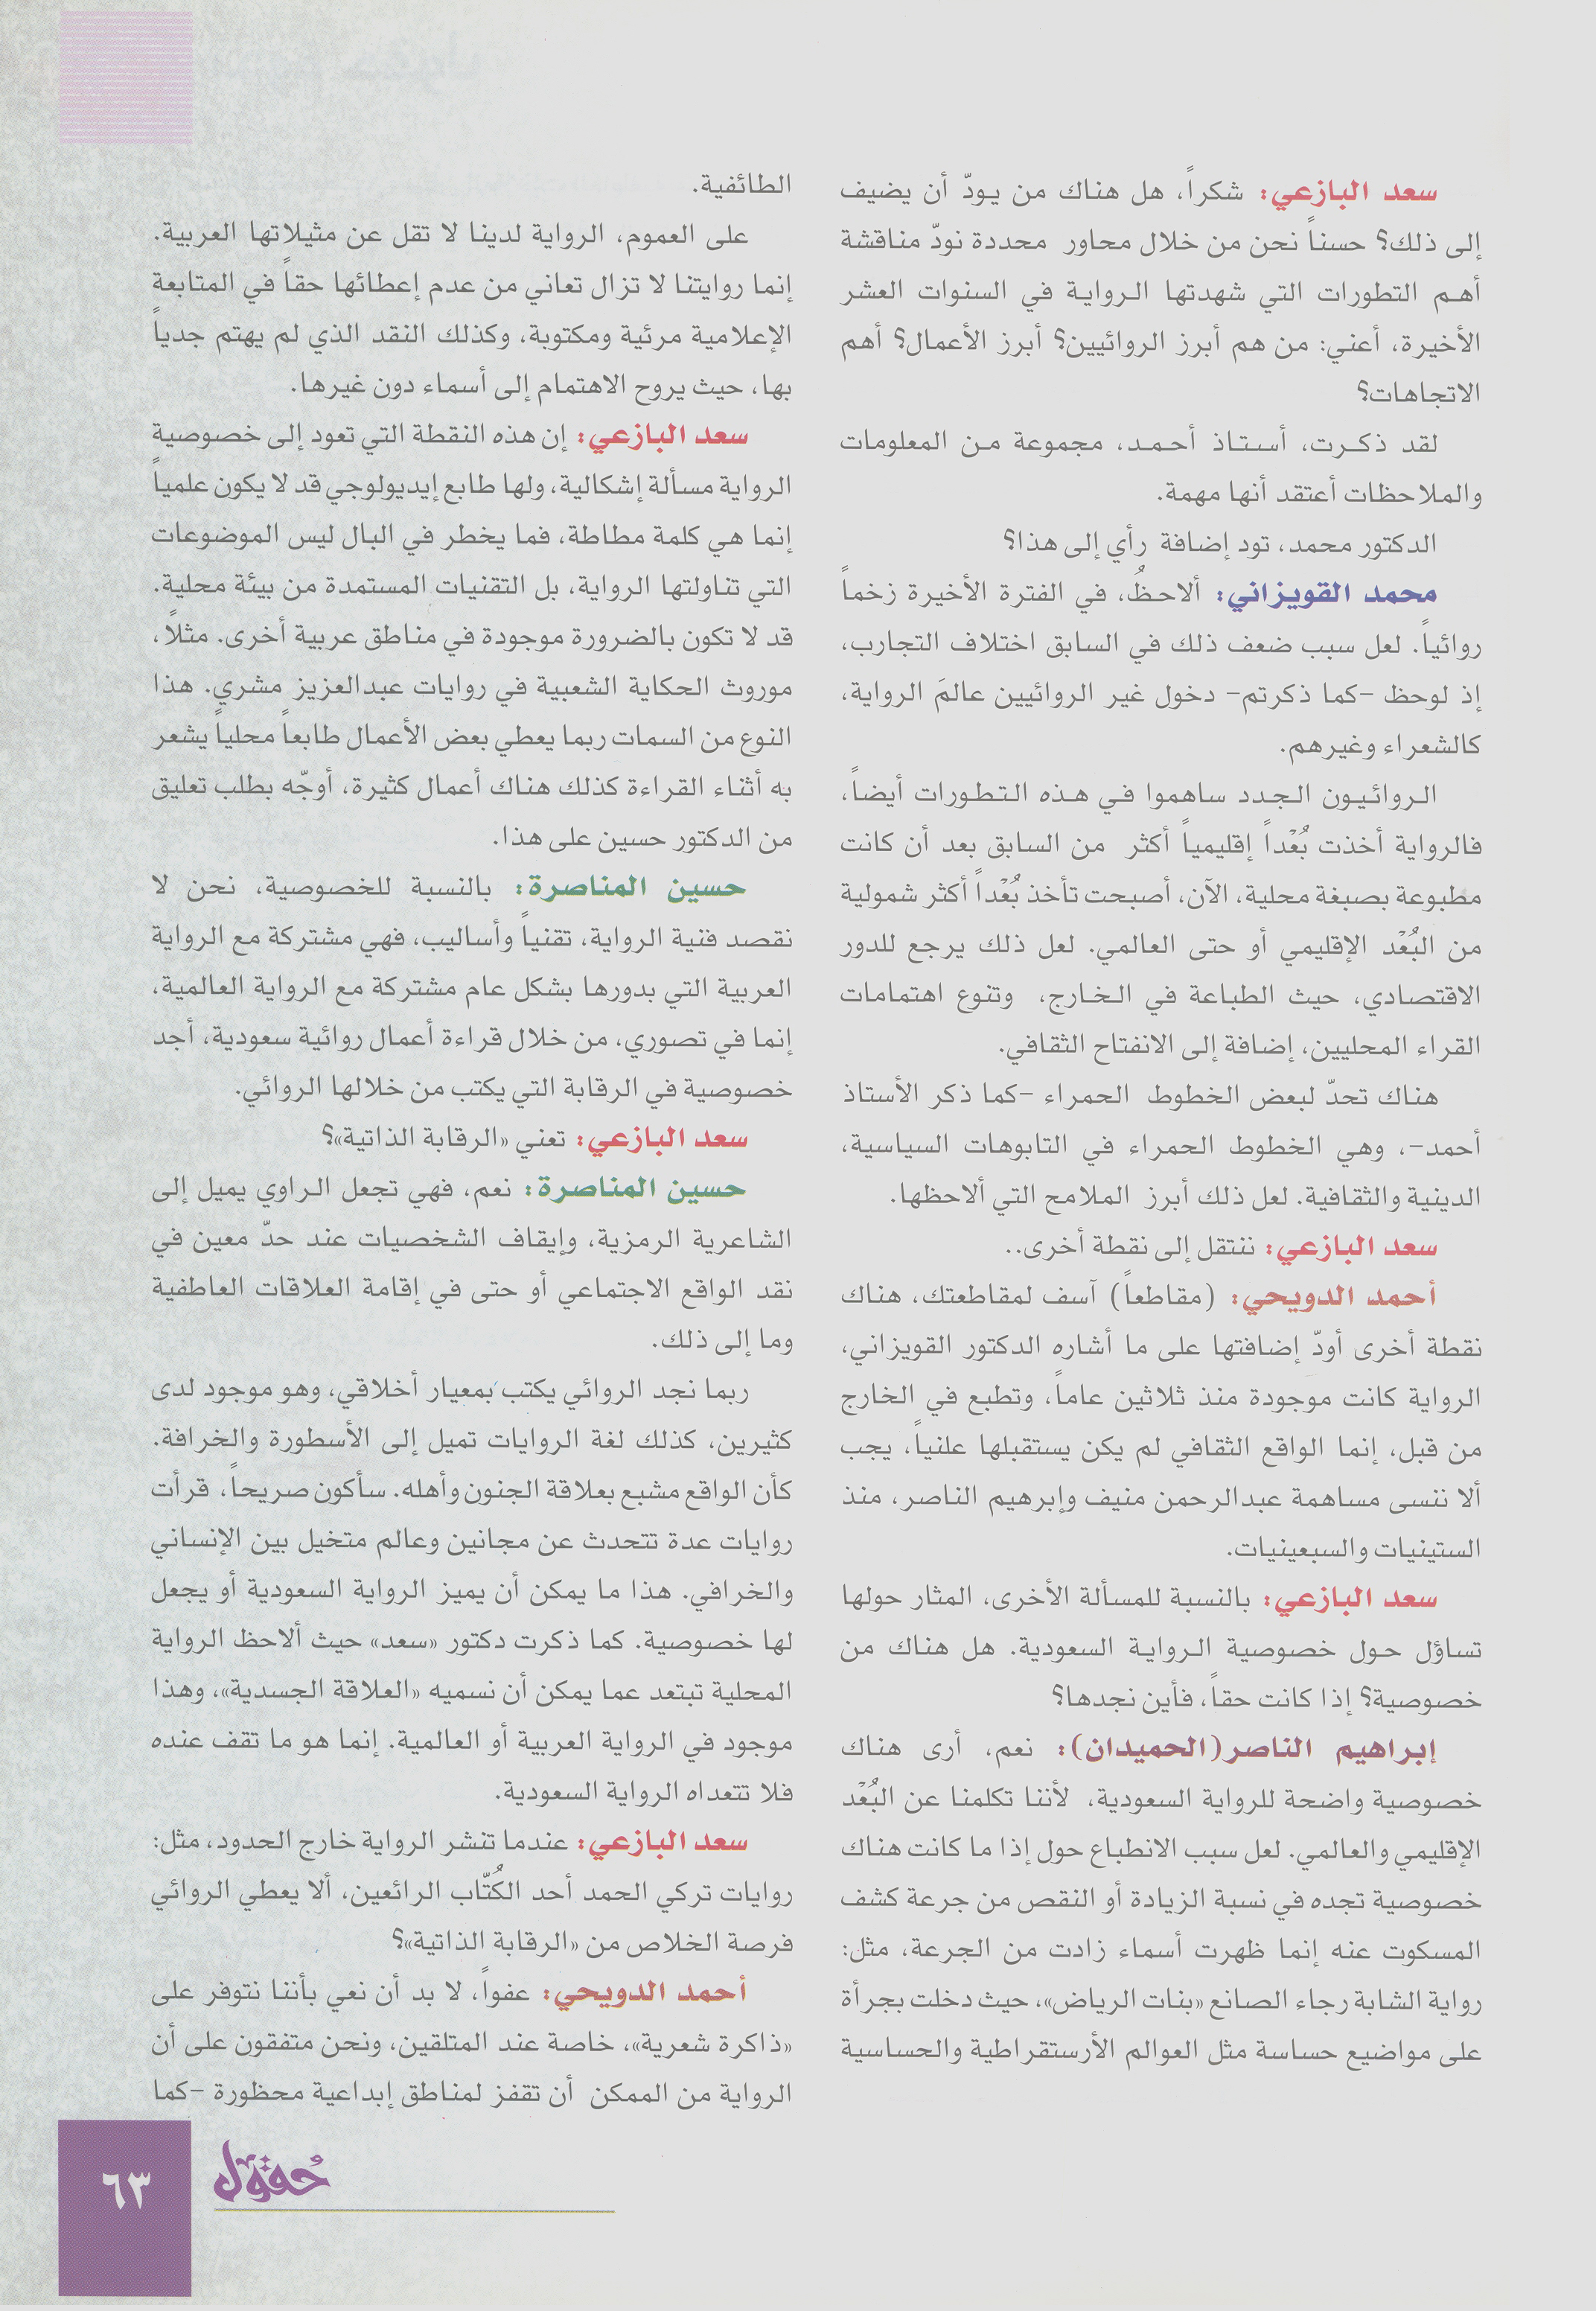 سعد البازعي: شكراً، هل هناك من يودّ أن يضيف
إلى ذلك؟ حسناً نحن من خلال محاور محددة نودّ مناقشة
أهم التطورات التي شهدتها الرواية في السنوات العشر
الأخيرة، أعني: من هم أبرز الروائيين؟ أبرز الأعمال؟ أهم
الاتجاهات؟
لقد ذكرت، أستاذ أحمد، مجموعة من المعلومات
والملاحظات أعتقد أنها مهمة.
الدكتور محمد، تود إضافة رأي إلى هذا؟
محمد القويزاني: ألاحظُ، في الفترة الأخيرة زخماً
روائياً. لعل سبب ضعف ذلك في السابق اختلاف التجارب،
إذ لوحظ -كما ذكرتم- دخول غير الروائيين عالمَ الرواية،
كالشعراء وغيرهم.
الروائيون الجدد ساهموا في هذه التطورات أيضاً،
فالرواية أخذت بُعْداً إقليمياً أكثر من السابق بعد أن كانت
مطبوعة بصبغة محلية، الآن، أصبحت تأخذ بُعْداً أكثر شمولية
من البُعْد الإقليمي أو حتى العالمي. لعل ذلك يرجع للدور
الاقتصادي، حيث الطباعة في الخارج، وتنوع اهتمامات
القراء المحليين، إضافة إلى الانفتاح الثقافي.
هناك تحدّ لبعض الخطوط الحمراء -كما ذكر الأستاذ
أحمد-، وهي الخطوط الحمراء في التابوهات السياسية،
الدينية والثقافية. لعل ذلك أبرز الملامح التي ألاحظها.
سعد البازعي: ننتقل إلى نقطة أخرى..
أحمد الدويحي: (مقاطعاً) آسف لمقاطعتك، هناك
نقطة أخرى أودّ إضافتها على ما أشاره الدكتور القويزاني،
الرواية كانت موجودة منذ ثلاثين عاماً، وتطبع في الخارج
من قبل، إنما الواقع الثقافي لم يكن يستقبلها علنياً، يجب
ألا ننسى مساهمة عبدالرحمن منيف وإبرهيم الناصر، منذ
الستينيات والسبعينيات.
سعد البازعي: بالنسبة للمسألة الأخرى، المثار حولها
تساؤل حول خصوصية الرواية السعودية. هل هناك من
خصوصية؟ إذا كانت حقاً، فأين نجدها؟
إبراهيم الناصر(الحميدان): نعم، أرى هناك
خصوصية واضحة للرواية السعودية، لأننا تكلمنا عن البُعْد
الإقليمي والعالمي. لعل سبب الانطباع حول إذا ما كانت هناك
خصوصية تجده في نسبة الزيادة أو النقص من جرعة كشف
المسكوت عنه إنما ظهرت أسماء زادت من الجرعة، مثل:
رواية الشابة رجاء الصانع «بنات الرياض»، حيث دخلت بجرأة
على مواضيع حساسة مثل العوالم الأرستقراطية والحساسية
الطائفية.
على العموم، الرواية لدينا لا تقل عن مثيلاتها العربية.
إنما روايتنا لا تزال تعاني من عدم إعطائها حقاً في المتابعة
الإعلامية مرئية ومكتوبة، وكذلك النقد الذي لم يهتم جدياً
بها، حيث يروح الاهتمام إلى أسماء دون غيرها.
سعد البازعي: إن هذه النقطة التي تعود إلى خصوصية
الرواية مسألة إشكالية، ولها طابع إيديولوجي قد لا يكون علمياً
إنما هي كلمة مطاطة، فما يخطر في البال ليس الموضوعات
التي تناولتها الرواية، بل التقنيات المستمدة من بيئة محلية.
قد لا تكون بالضرورة موجودة في مناطق عربية أخرى. مثلاً،
موروث الحكاية الشعبية في روايات عبدالعزيز مشري. هذا
النوع من السمات ربما يعطي بعض الأعمال طابعاً محلياً يشعر
به أثناء القراءة كذلك هناك أعمال كثيرة، أوجّه بطلب تعليق
من الدكتور حسين على هذا.
حسين المناصرة: بالنسبة للخصوصية، نحن لا
نقصد فنية الرواية، تقنياً وأساليب، فهي مشتركة مع الرواية
العربية التي بدورها بشكل عام مشتركة مع الرواية العالمية،
إنما في تصوري، من خلال قراءة أعمال روائية سعودية، أجد
خصوصية في الرقابة التي يكتب من خلالها الروائي.
سعد البازعي: تعني «الرقابة الذاتية»؟
حسين المناصرة: نعم، فهي تجعل الراوي يميل إلى
الشاعرية الرمزية، وإيقاف الشخصيات عند حدّ معين في
نقد الواقع الاجتماعي أو حتى في إقامة العلاقات العاطفية
وما إلى ذلك.
ربما نجد الروائي يكتب بمعيار أخلاقي، وهو موجود لدى
كثيرين، كذلك لغة الروايات تميل إلى الأسطورة والخرافة.
كأن الواقع مشبع بعلاقة الجنون وأهله. سأكون صريحاً، قرأت
روايات عدة تتحدث عن مجانين وعالم متخيل بين الإنساني
والخرافي. هذا ما يمكن أن يميز الرواية السعودية أو يجعل
لها خصوصية. كما ذكرت دكتور «سعد» حيث ألاحظ الرواية
المحلية تبتعد عما يمكن أن نسميه «العلاقة الجسدية»، وهذا
موجود في الرواية العربية أو العالمية. إنما هو ما تقف عنده
فلا تتعداه الرواية السعودية.
سعد البازعي: عندما تنشر الرواية خارج الحدود، مثل:
روايات تركي الحمد أحد الكُتّاب الرائعين، ألا يعطي الروائي
فرصة الخلاص من «الرقابة الذاتية»؟
أحمد الدويحي: عفواً، لا بد أن نعي بأننا نتوفر على
«ذاكرة شعرية»، خاصة عند المتلقين، ونحن متفقون على أن
الرواية من الممكن أن تقفز لمناطق إبداعية محظورة -كما
حُقول
٦٣